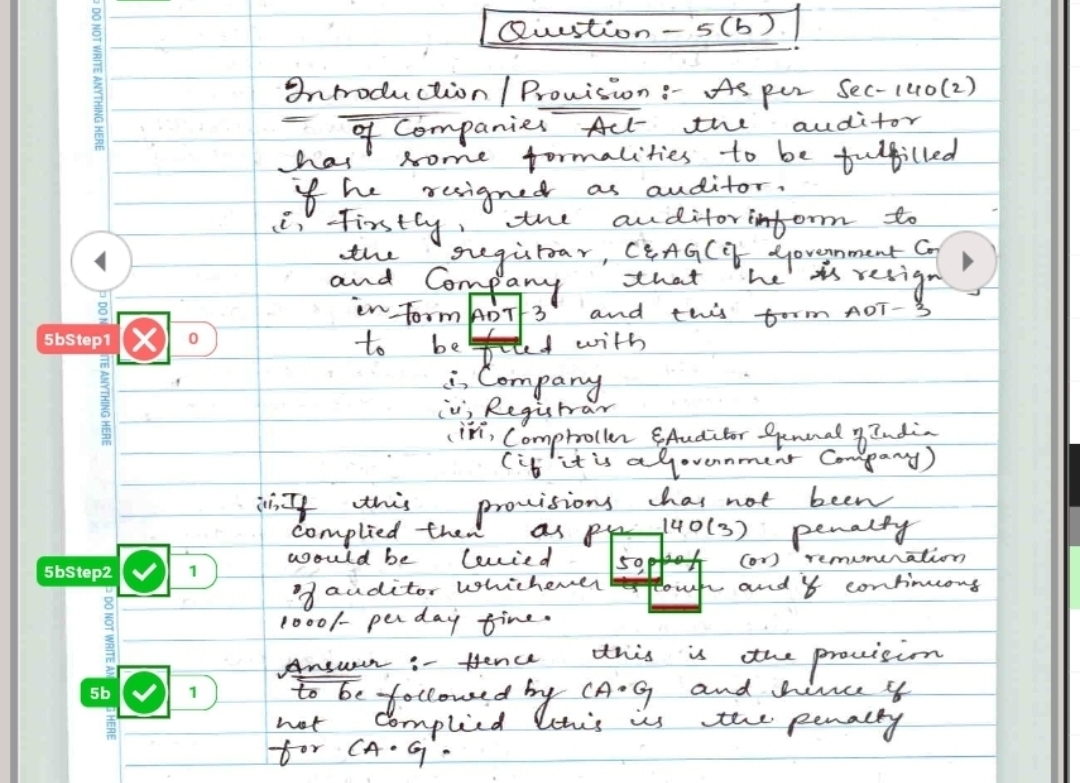 Question - 5(b)
DO NOT WRITE ANYTHING HERE
Introduction / Provision :- As per Sec-140(2)
of Companies Act the auditor
has some formalities to be fulfilled
if he resigned as auditor.
i, Firstly, the auditor inform to
the registrar, C&AG (if Government Co
and Company that he is resign
in Form ADT-3 and this form ADT-3
5bStep1 0
to be filed with
i, Company
ii, Registrar
iii, Comptroller & Auditor General of India
(if it is a Government Company)
ii, If this provisions has not been
complied then as per 140(3) penalty
would be levied 50,000/- (or) remuneration
5bStep2 1
of auditor whichever is lower and if continuous
1000/- per day fine.
Answer :- Hence this is the provision
5b 1
to be followed by CA.G and hence if
not complied this is the penalty
for CA.G.